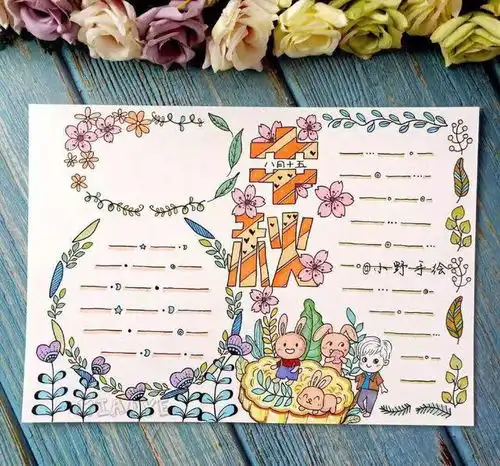 中
八月十五
秋
@小野手绘